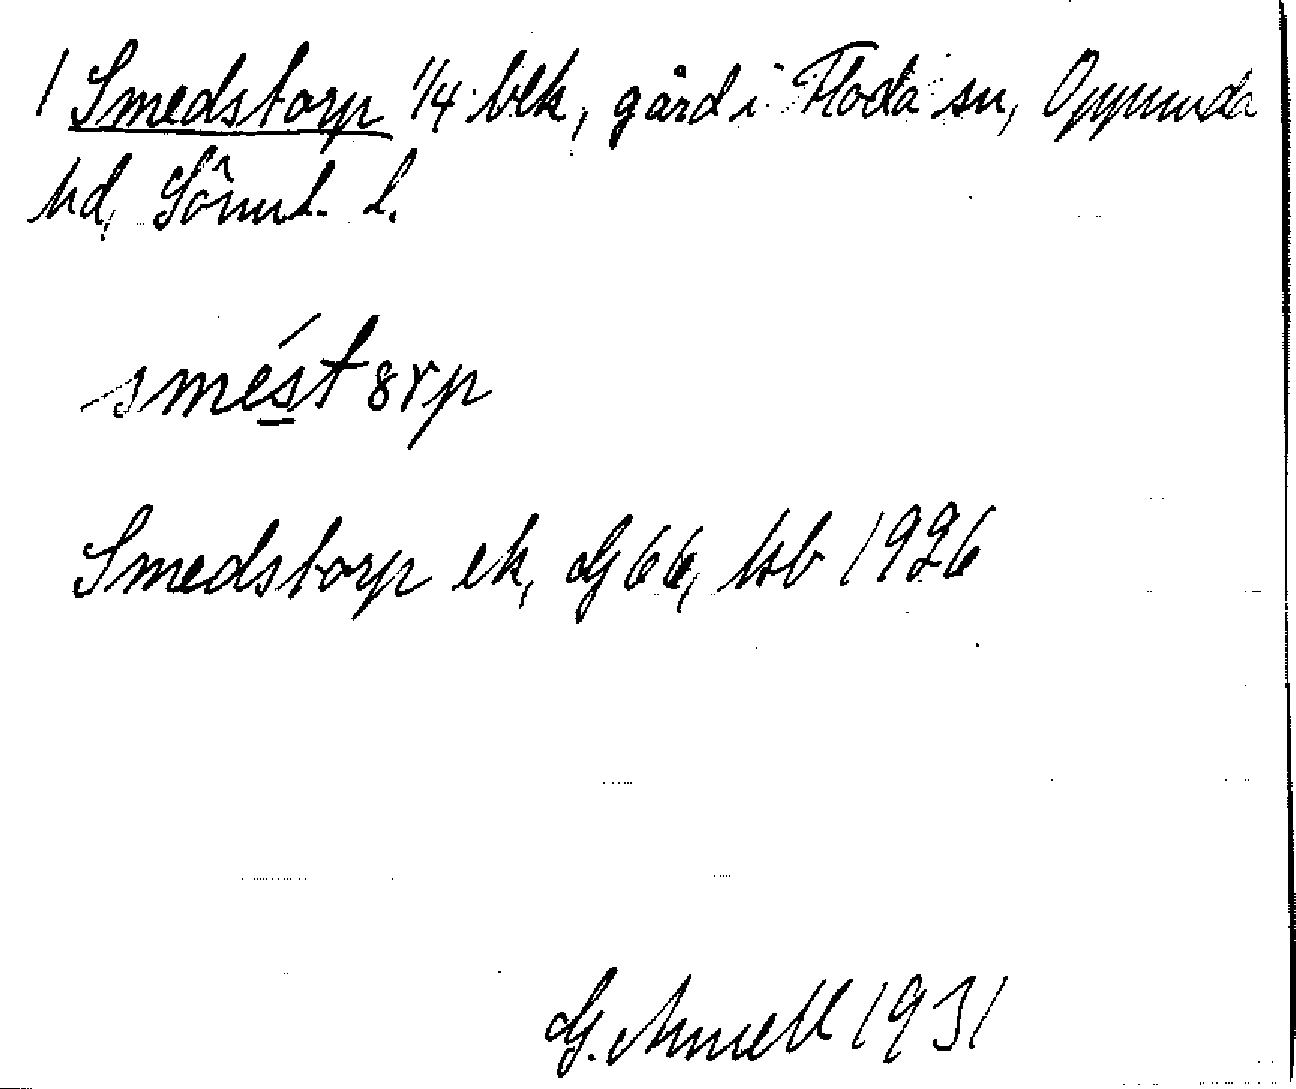 1 Smedstorp 1/4 blk, gård i Floda sn, Oppunda
hd, Sörml. l.
sméstarp
Smedstorp ek, Gj 66, hsb 1926
G. Arnell 1931